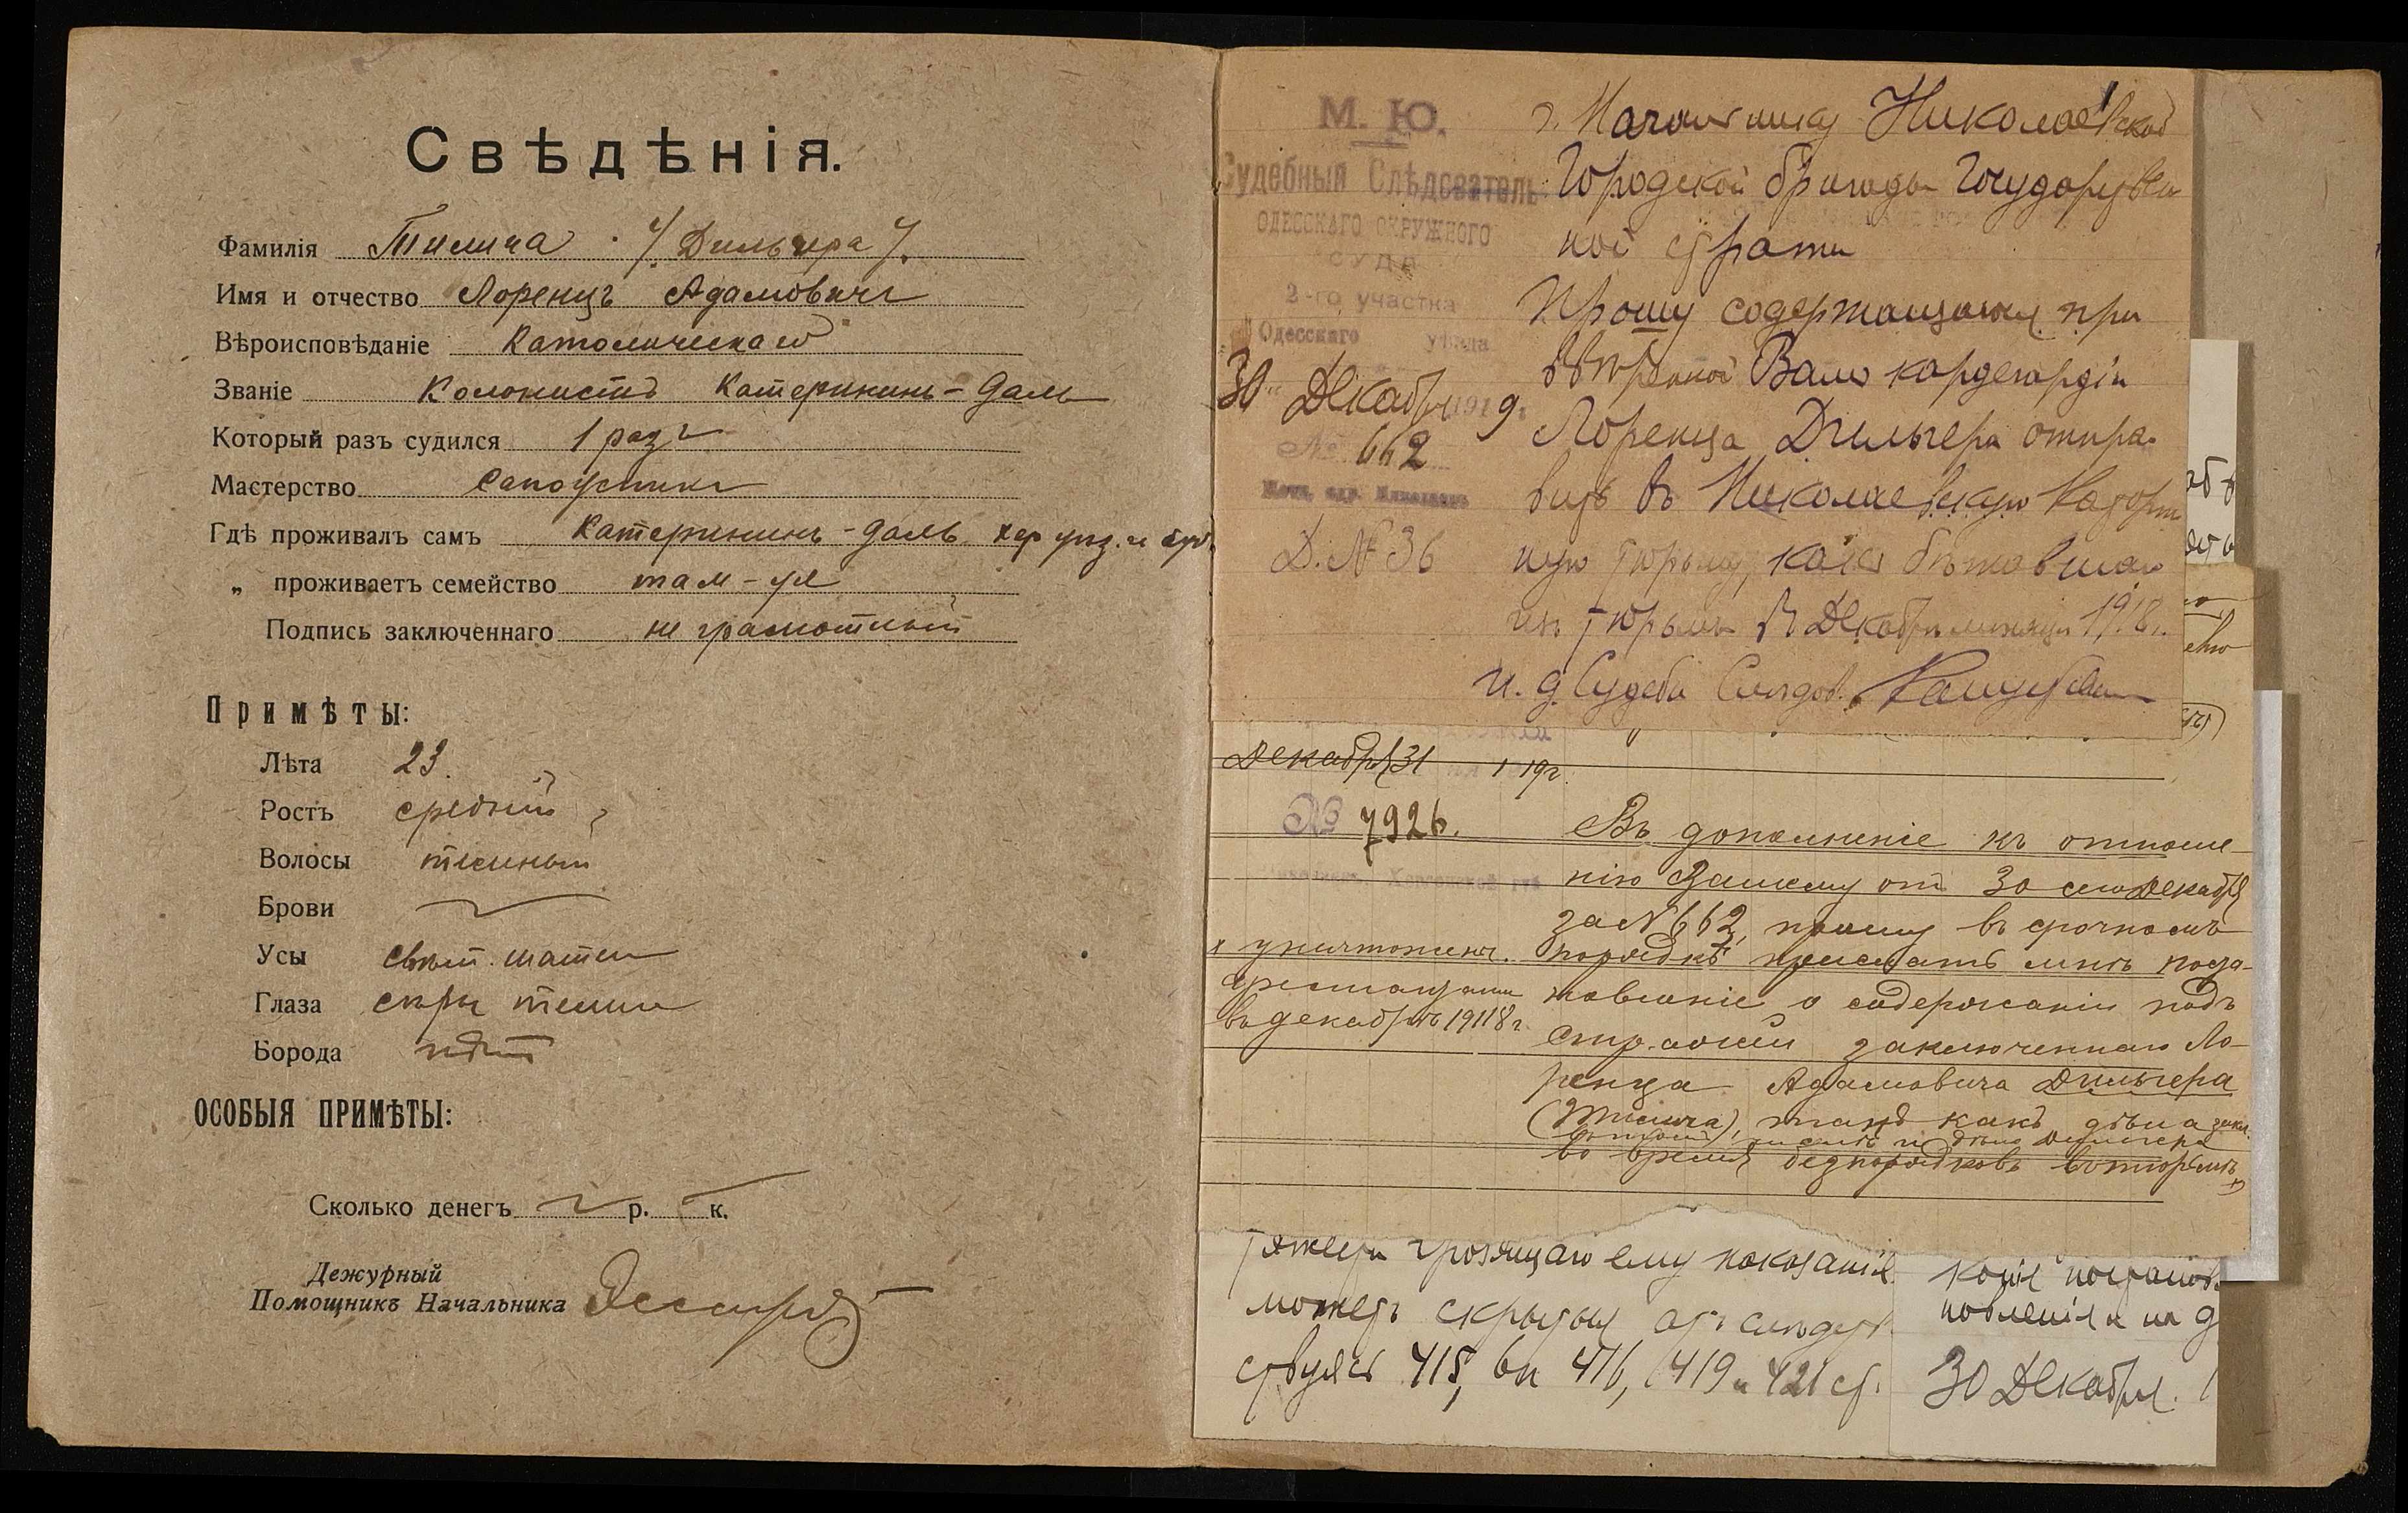 Свѣдѣнія.
Фамилія Тилича /Дильгера/.
Имя и отчество Лоренцъ Адамовичъ
Вѣроисповѣданіе Католическаго
Званіе Колонистъ Катерининъ-Даль
Который разъ судился 1 разъ
Мастерство Сапожникъ
Гдѣ проживалъ самъ Катерининъ-Даль Хер уѣз. и губ.
„ проживаетъ семейство там-же
Подпись заключеннаго не грамотный
Примѣты:
Лѣта 23.
Ростъ средній
Волосы темный
Брови
Усы свѣт. шатен
Глаза сѣры темни
Борода нѣтъ
ОСОБЫЯ ПРИМѢТЫ:
Сколько денегъ р. к.
Дежурный
Помощникъ Начальника
М. Ю.
Судебный Слѣдователь
ОДЕССКАГО ОКРУЖНОГО
СУДА
2-го участка
Одесскаго уѣзда
30 Декабря 1919 г.
№ 662
Д. № 36
г. Начальнику Николаевской
Городской бригады Государствен
ной стражи
Прошу содержащагося при
ввѣренной Вамъ кордегардіи
Лоренца Дильгера отпра-
вить въ Николаевскую Каторж
ную тюрьму, какъ бѣжавшаго
изъ тюрьмы въ Декабрѣ мѣсяцѣ 1918 г.
И. д. Судебн Слѣдов.
Декабря 31 19 г.
№ 7926.
Въ дополненіе къ отноше-
нію Вашему отъ 30 сего Декабря
за № 662, прошу въ срочномъ
порядкѣ прислать мнѣ поста-
новленіе о содержаніи подъ
стражей заключеннаго Ло-
ренца Адамовича Дильгера
(Тилича), такъ какъ дѣла закл.
въ томъ числѣ и дѣло Дильгера
во время безпорядковъ въ тюрьмѣ
х уничтожены.
арестантами
въ декабрѣ 1918 г.
тяжести грозящаго ему наказанія
можетъ скрыться отъ слѣдст
ствуясь 415, вп 416, 419 и 421 ст.
Копія постанов
новленія и на д
30 Декабря. 1